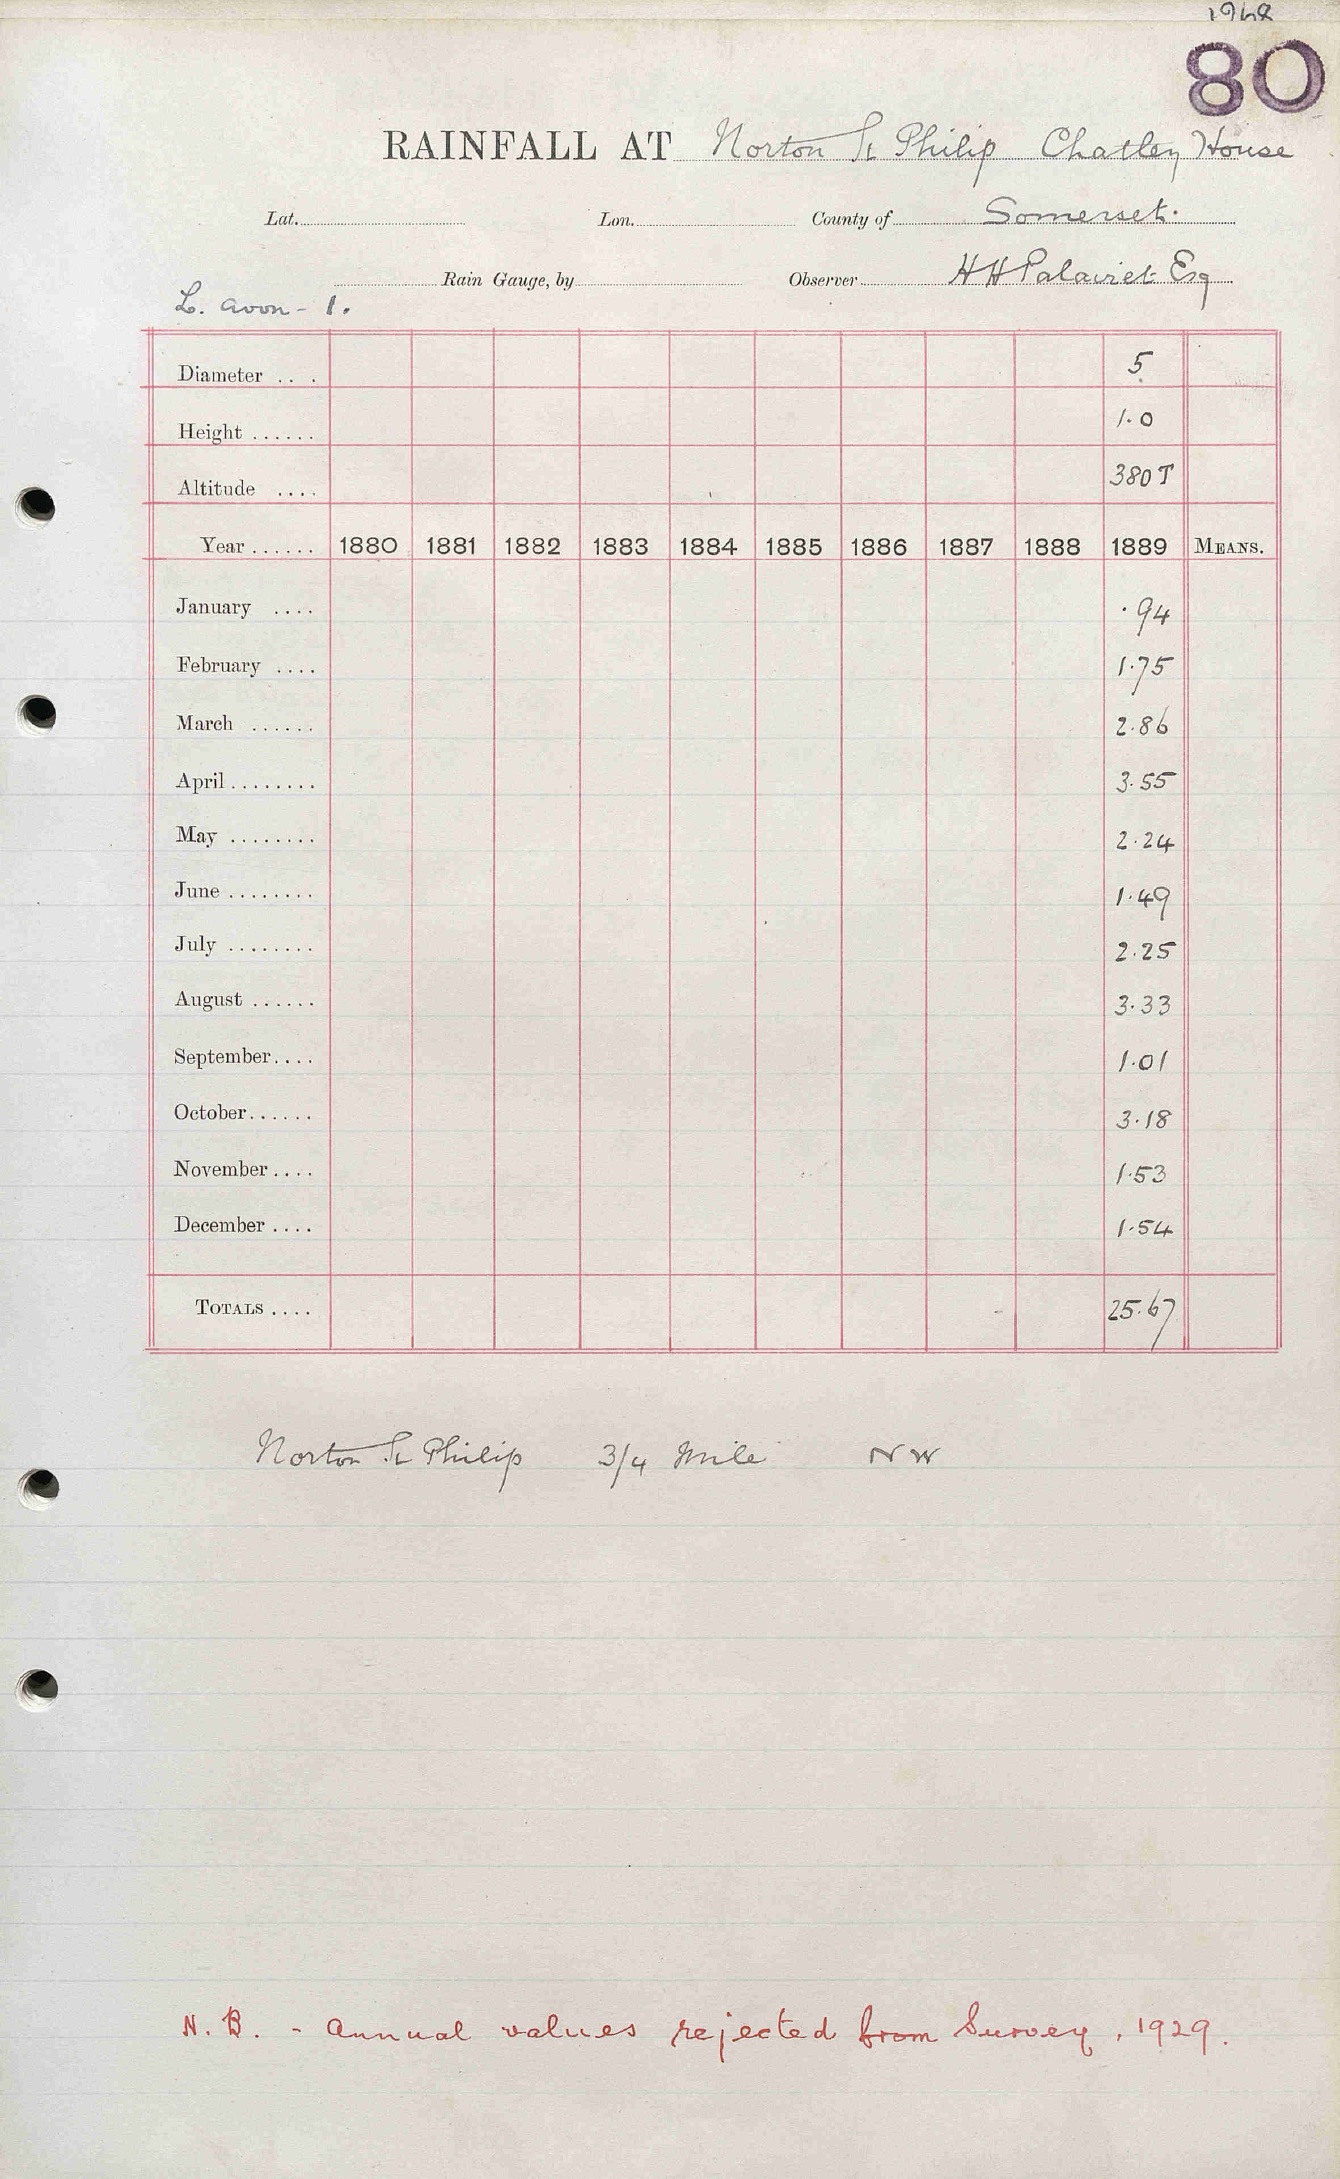 1968
80
RAINFALL AT Norton St Philip Chatley House
Lat. Lon. County of Somerset.
Rain Gauge, by Observer H H Palairet Esq
L. Avon - 1.
Diameter . . . 5
Height ...... 1.0
Altitude .... 380 T
Year ...... 1880 1881 1882 1883 1884 1885 1886 1887 1888 1889 MEANS.
January .... .94
February .... 1.75
March ...... 2.86
April ........ 3.55
May ........ 2.24
June ........ 1.49
July ........ 2.25
August ...... 3.33
September.... 1.01
October...... 3.18
November .... 1.53
December .... 1.54
TOTALS .... 25.67
Norton St Philip 3/4 Mile NW
N.B. - Annual values rejected from Survey, 1929.